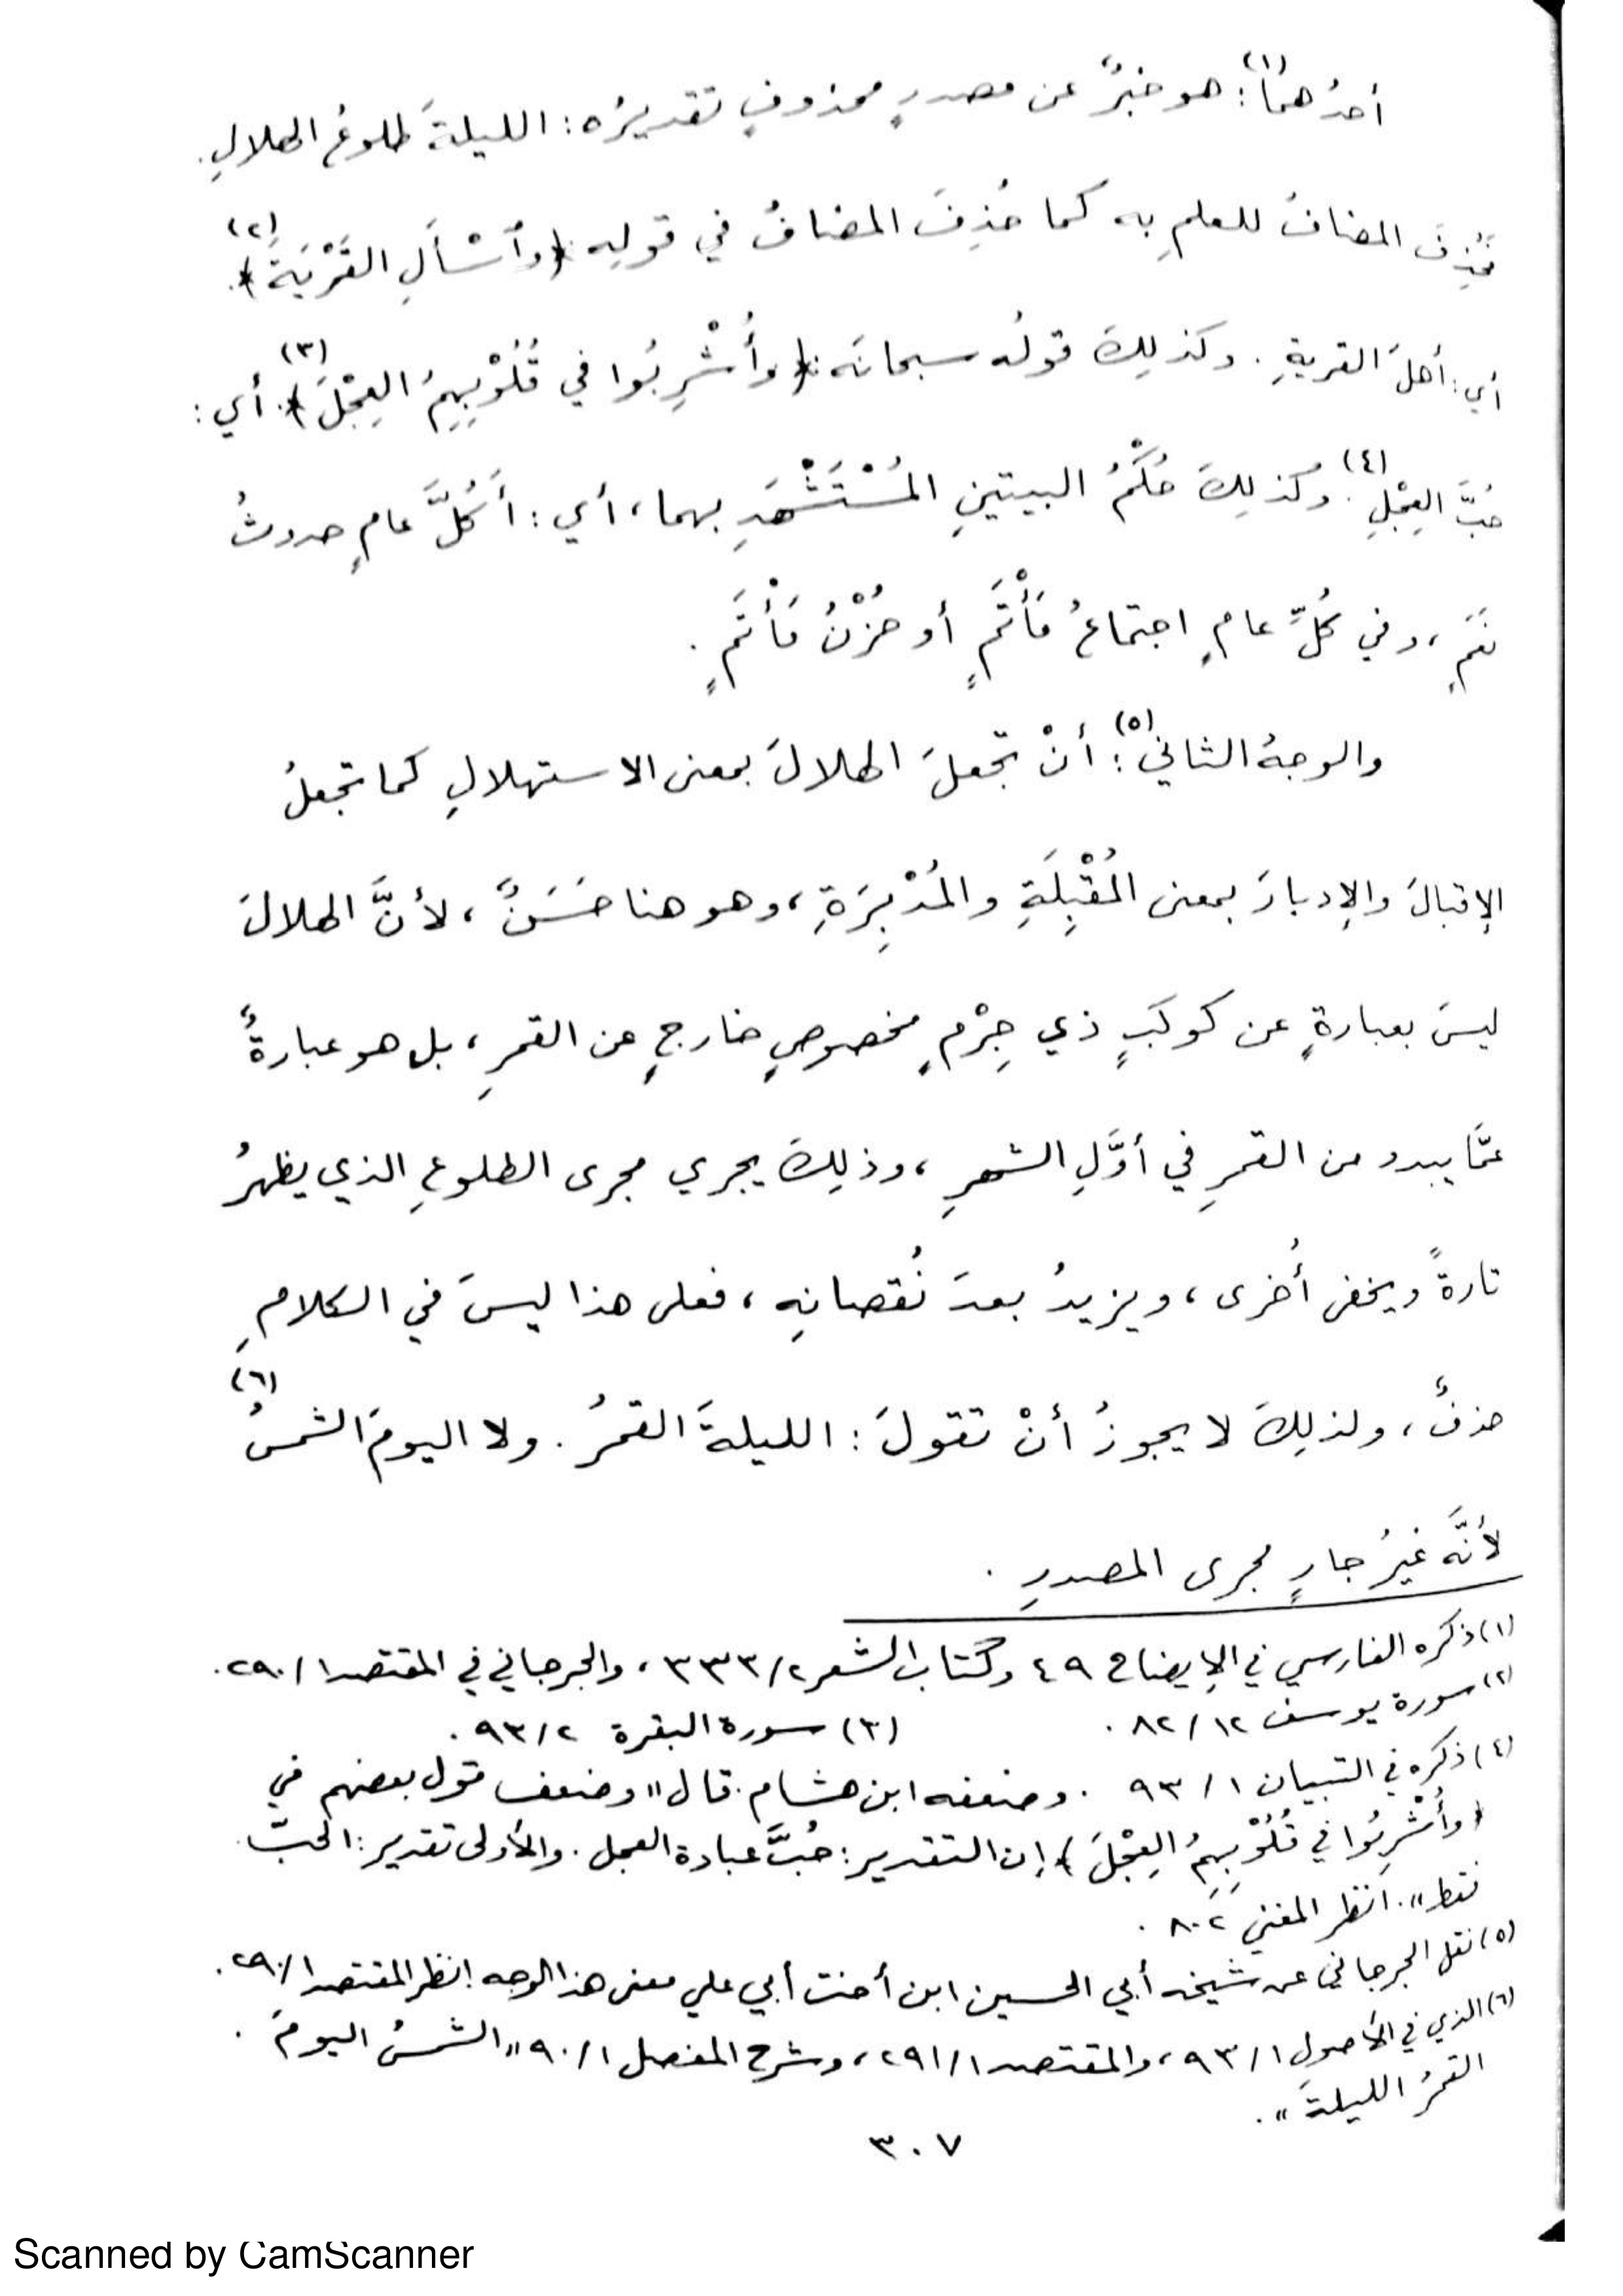 أحدُهما(١): هو خبرٌ عن مصدرٍ محذوفٍ تقديرُه: الليلةَ طلوعُ الهلالِ.
فحُذِفَ المضافُ للعلمِ به كما حُذِفَ المضافُ في قولِه ﴿وٱسْأَلِ القَرْيَةَ﴾(٢).
أي: أهلَ القريةِ. وكذلِكَ قولُه سبحانَه: ﴿وأُشْرِبُوا في قُلُوْبِهِمُ العِجْلَ﴾(٣). أي:
حُبَّ العِجْلِ(٤). وكذلِكَ حُكْمُ البيتينِ المُسْتَشْهَدِ بهما، أي: أَكُلَّ عامٍ حدوثُ
نَعَمٍ، وفي كُلِّ عامٍ اجتماعُ مَأْتَمٍ أو حُزْنُ مَأْتَمٍ.
والوجهُ الثاني(٥): أنْ تجعلَ الهلالَ بمعنى الاستهلالِ كما تجعلُ
الإقبالَ والإدبارَ بمعنى المُقْبِلَةِ والمُدْبِرَةِ، وهو هنا حَسَنٌ، لأنَّ الهلالَ
ليسَ بعبارةٍ عن كوكَبٍ ذي جِرْمٍ مخصوصٍ خارجٍ عن القمرِ، بل هو عبارةٌ
عمَّا يبدو من القمرِ في أوَّلِ الشهرِ، وذلِكَ يجري مجرى الطلوعِ الذي يظهرُ
تارةً ويخفى أُخرى، ويزيدُ بعدَ نُقصانِه، فعلى هذا ليسَ في الكلامِ
حذفٌ، ولذلِكَ لا يجوزُ أنْ تقولَ: الليلةَ القمرُ. ولا اليومَ الشمسُ(٦)
لأنَّه غيرُ جارٍ مجرى المصدرِ.
(١) ذكره الفارسي في الإيضاح ٤٩ وكتاب الشعر ٢/٣٣٣، والجرجاني في المقتصد ١/٢٩٠.
(٢) سورة يوسف ١٢/٨٢. (٣) سورة البقرة ٢/٩٣.
(٤) ذكره في التبيان ١/٩٣. وضعفه ابن هشام. قال "وضعف قول بعضهم في
﴿وأُشْرِبُوا في قُلُوْبِهِمُ العِجْلَ﴾ إن التقدير: حُبَّ عبادة العجل. والأولى تقدير: الحبّ
فقط". انظر المغني ٨٠٢.
(٥) نقل الجرجاني عن شيخه أبي الحسين ابن أخت أبي علي معنى هذا الوجه. انظر المقتصد ١/٢٩٠.
(٦) الذي في الأصول ١/٩٣، والمقتصد ١/٢٩١، وشرح المفصل ١/٩٠ "الشمسُ اليومَ.
القمرُ الليلةَ".
٣٠٧
Scanned by CamScanner